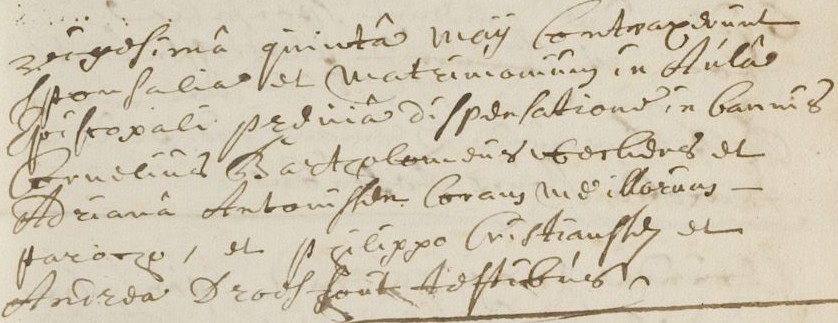 vigesimâ quintâ Maij Contraxerunt
sponsalia et Matrimonium in Aulâ
Episcopali præviâ dispensatione in bannis
Cornelius Bartholomeus et
Adriana Antonissen Coram me illorum
parocho, et philippo Cristianssen et
Andrea Droeshout testibus